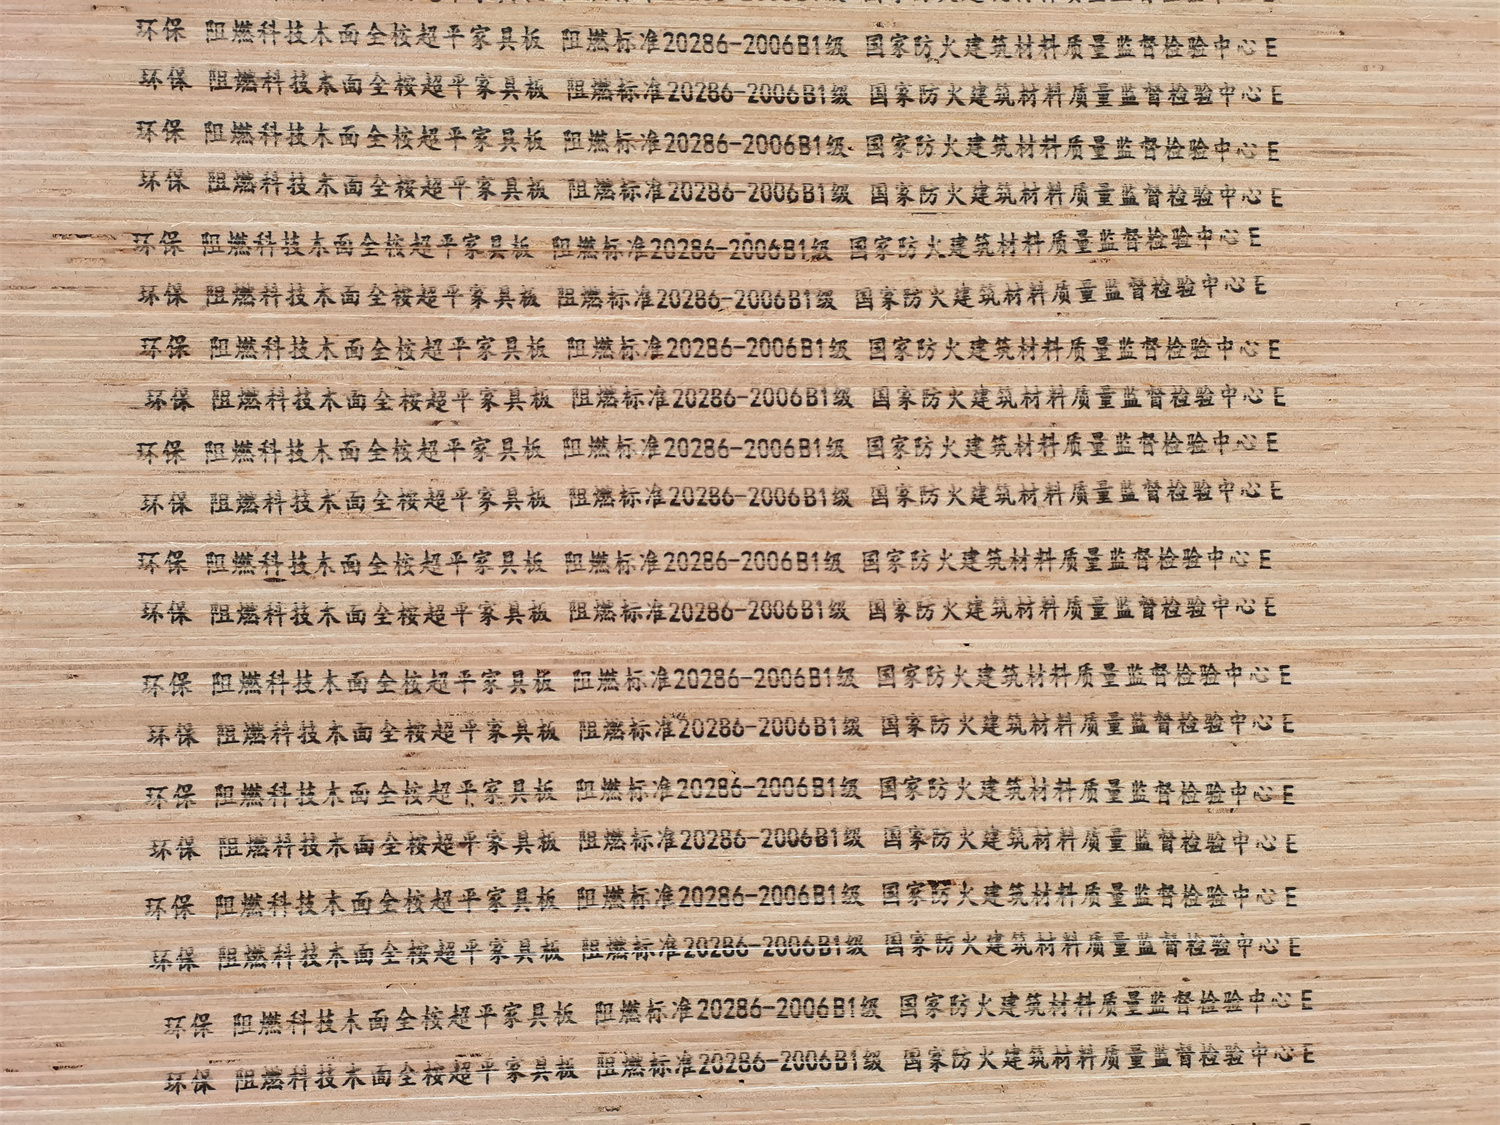 环保 阻燃科技木面全桉超平家具板 阻燃标准20286-2006B1级 国家防火建筑材料质量监督检验中心 E
环保 阻燃科技木面全桉超平家具板 阻燃标准20286-2006B1级 国家防火建筑材料质量监督检验中心 E
环保 阻燃科技木面全桉超平家具板 阻燃标准20286-2006B1级 国家防火建筑材料质量监督检验中心 E
环保 阻燃科技木面全桉超平家具板 阻燃标准20286-2006B1级 国家防火建筑材料质量监督检验中心 E
环保 阻燃科技木面全桉超平家具板 阻燃标准20286-2006B1级 国家防火建筑材料质量监督检验中心 E
环保 阻燃科技木面全桉超平家具板 阻燃标准20286-2006B1级 国家防火建筑材料质量监督检验中心 E
环保 阻燃科技木面全桉超平家具板 阻燃标准20286-2006B1级 国家防火建筑材料质量监督检验中心 E
环保 阻燃科技木面全桉超平家具板 阻燃标准20286-2006B1级 国家防火建筑材料质量监督检验中心 E
环保 阻燃科技木面全桉超平家具板 阻燃标准20286-2006B1级 国家防火建筑材料质量监督检验中心 E
环保 阻燃科技木面全桉超平家具板 阻燃标准20286-2006B1级 国家防火建筑材料质量监督检验中心 E
环保 阻燃科技木面全桉超平家具板 阻燃标准20286-2006B1级 国家防火建筑材料质量监督检验中心 E
环保 阻燃科技木面全桉超平家具板 阻燃标准20286-2006B1级 国家防火建筑材料质量监督检验中心 E
环保 阻燃科技木面全桉超平家具板 阻燃标准20286-2006B1级 国家防火建筑材料质量监督检验中心 E
环保 阻燃科技木面全桉超平家具板 阻燃标准20286-2006B1级 国家防火建筑材料质量监督检验中心 E
环保 阻燃科技木面全桉超平家具板 阻燃标准20286-2006B1级 国家防火建筑材料质量监督检验中心 E
环保 阻燃科技木面全桉超平家具板 阻燃标准20286-2006B1级 国家防火建筑材料质量监督检验中心 E
环保 阻燃科技木面全桉超平家具板 阻燃标准20286-2006B1级 国家防火建筑材料质量监督检验中心 E
环保 阻燃科技木面全桉超平家具板 阻燃标准20286-2006B1级 国家防火建筑材料质量监督检验中心 E
环保 阻燃科技木面全桉超平家具板 阻燃标准20286-2006B1级 国家防火建筑材料质量监督检验中心 E
环保 阻燃科技木面全桉超平家具板 阻燃标准20286-2006B1级 国家防火建筑材料质量监督检验中心 E